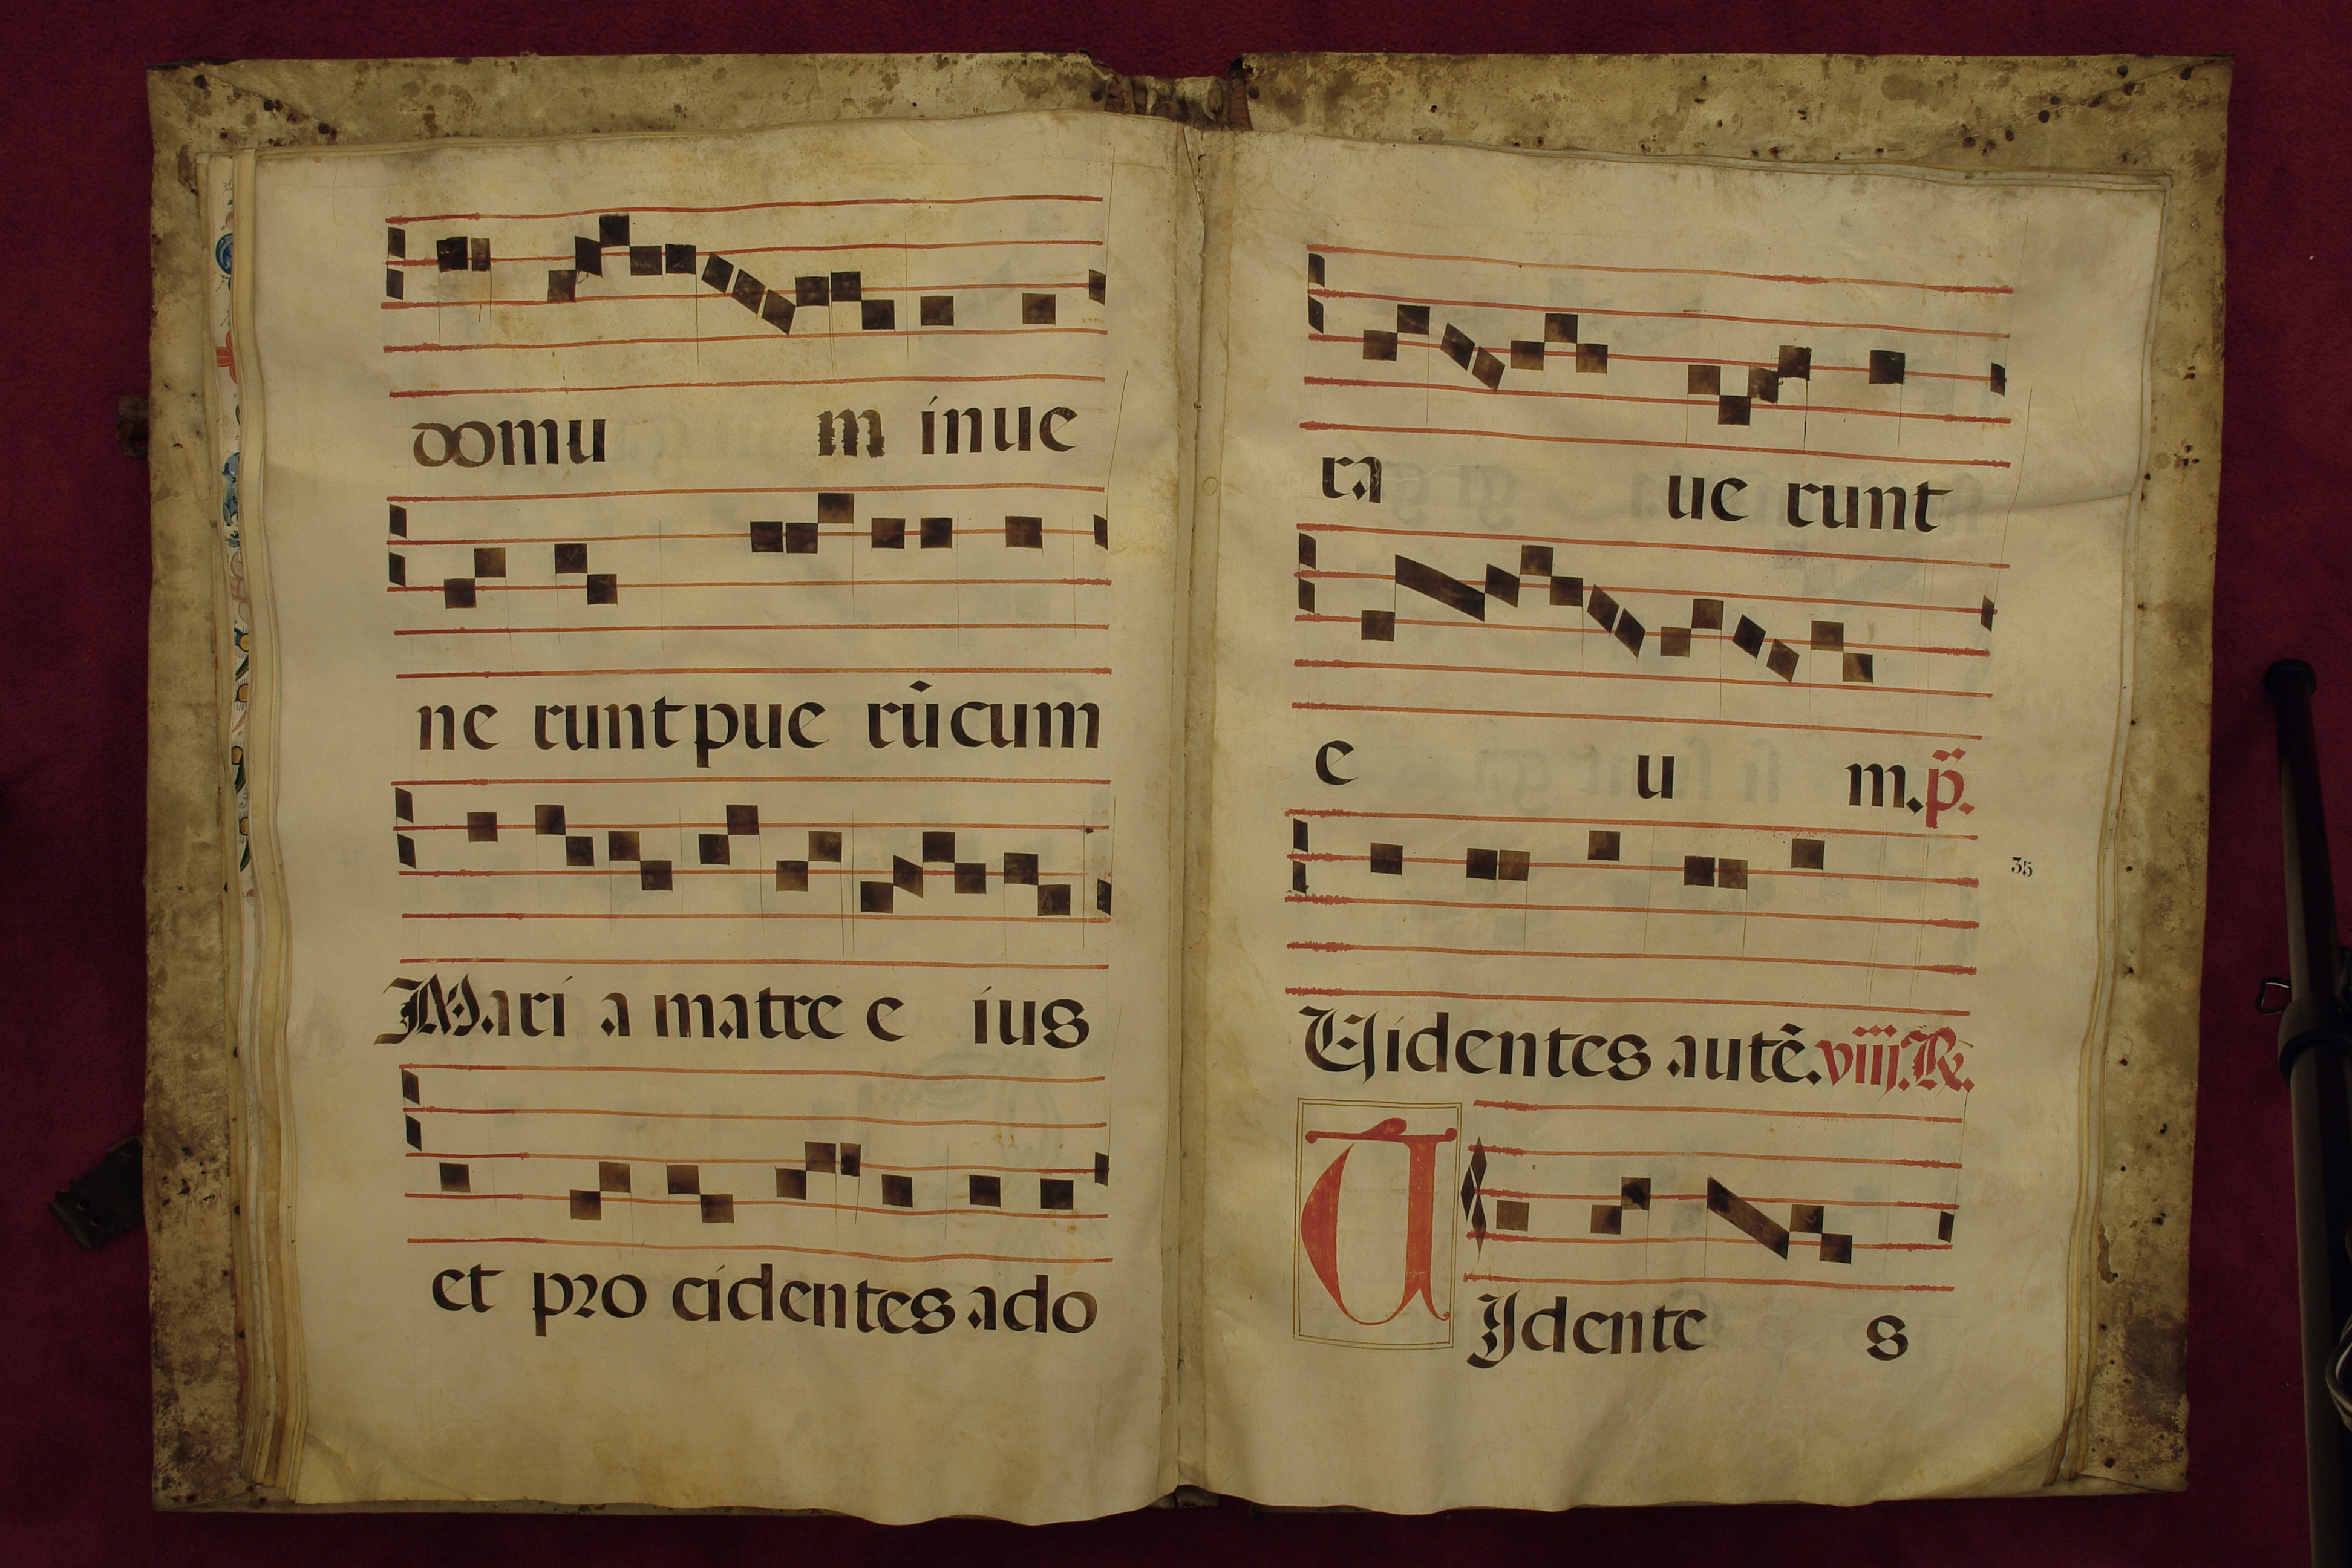 domu m inue
ne runt pue rũ cum
Mari a matre e ius
et pro cidentes ado
ra ue runt
e u m. p̃.
35
Uidentes autẽ. viiij. R.
U
Jdente s